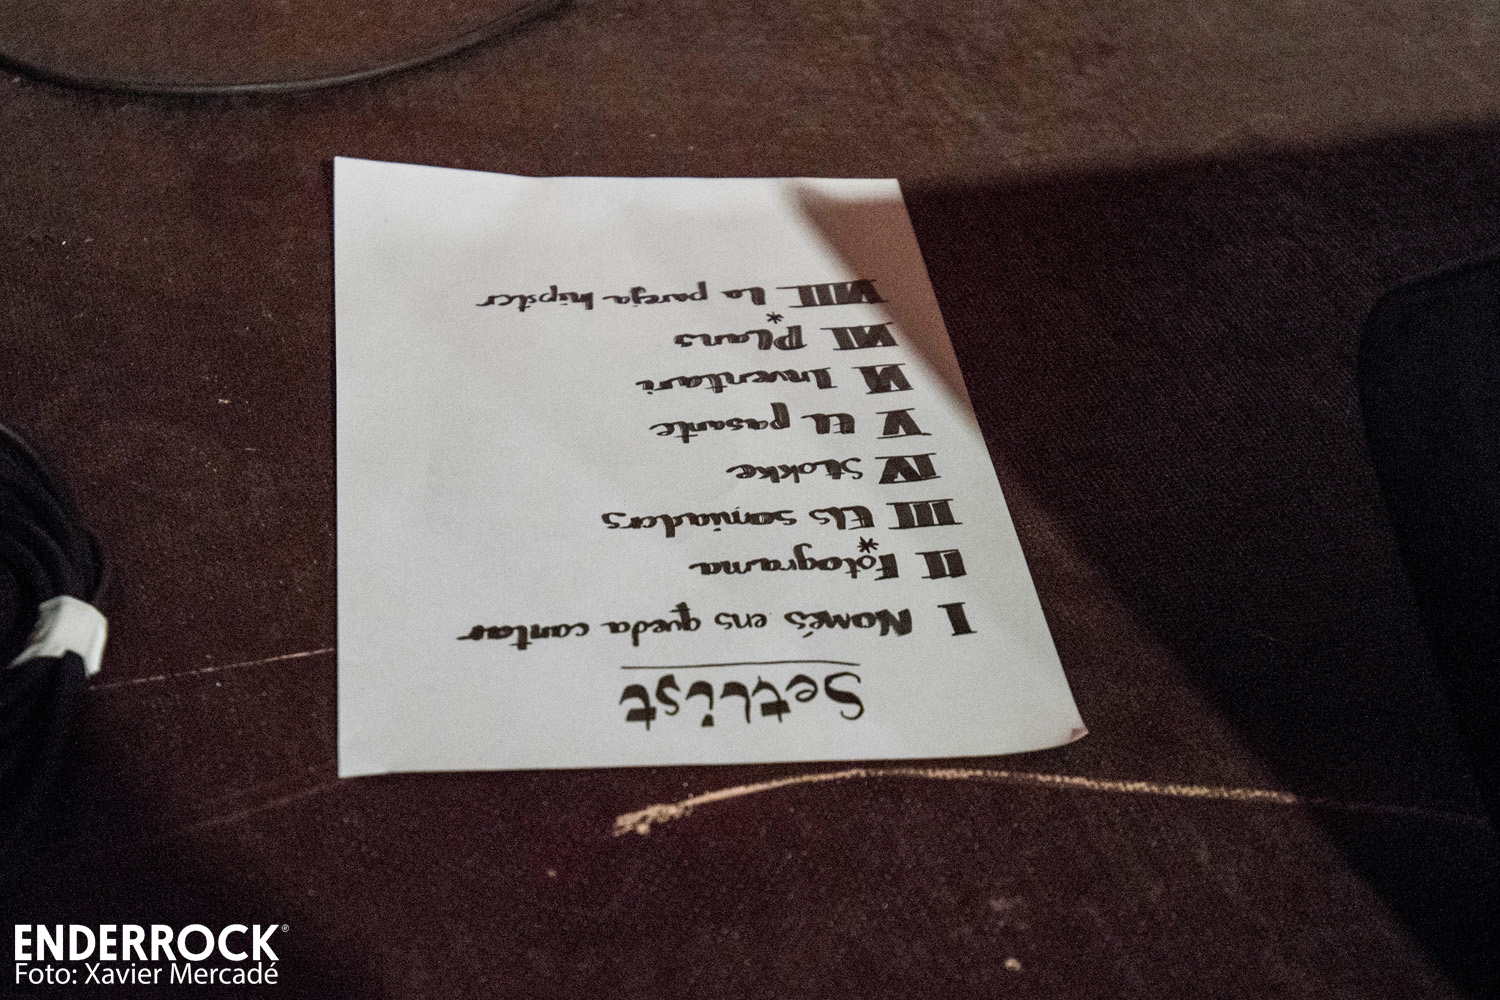 Setlist
I Només ens queda cantar
II Fotograma
*
III Els somiaders
IV Stokke
V El pasante
VI Inventari
VII Plans
*
VIII La pareja hipster
ENDERROCK®
Foto: Xavier Mercadé